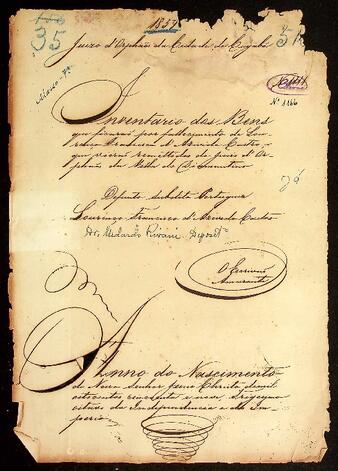 35
1859
Juizo d'Orphãos da Cidade de Cuyabá
Nº 1166
Inventario dos Bens
que ficarão por fallecimento de Lou-
renço Francisco d'Azevedo Castro,
que vierão remettidos do juizo d'Or-
phãos da Villa do Diamantino
já
Defunto Subdito Portuguez
Lourenço Francisco d'Azevedo Castro
Dr. Medardo Rivani Deposit.
O Escrivão
Amarante
Anno do Nascimento
de Nosso Senhor Jesus Christo de mil
oitocentos cincoenta e nove, trigesimo
oitavo da Independencia e do Im-
perio